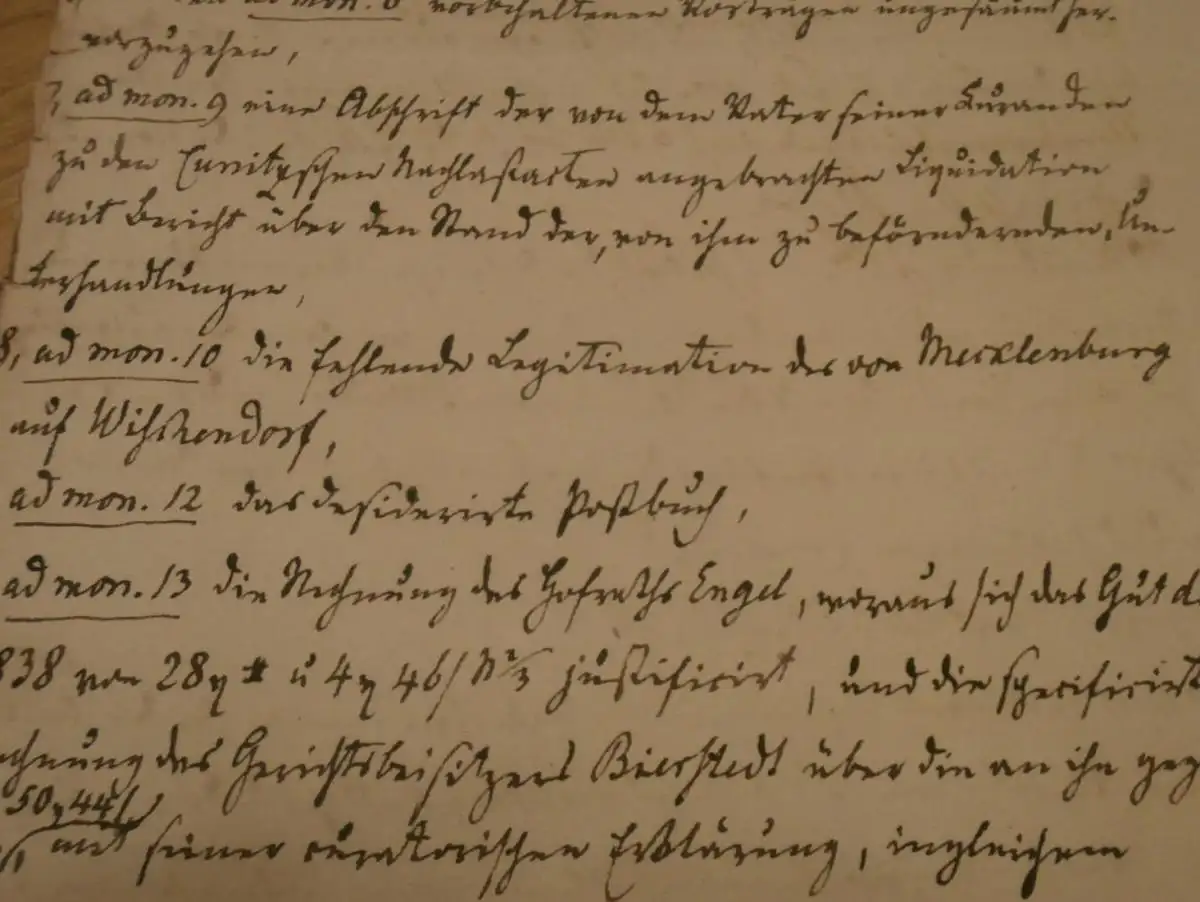 ad mon. 8 vorbehaltenen Vorträgen ungesäumt her-
vorzugehen,
7, ad mon. 9 eine Abschrift der von dem Vater seiner Curanden
zu den Nachlaßacten angebrachten Liquidation
mit Bericht über den Stand der, von ihm zu beförndernden, Un-
terhandlungen,
8, ad mon. 10 die fehlende Legitimation des von Mecklenburg
auf Wischendorf,
ad mon. 12 das desiderirte Postbuch,
ad mon. 13 die Rechnung des Hofraths Engel, woraus sich das Gut d
838 von 28 u 4 46 N 2/3 justificirt, und die specificirt
chnung des Gerichtsbeisitzers Bierstedt über die an ihn geg
50 44
mit seiner curatorischen Erklärung, ingleichem